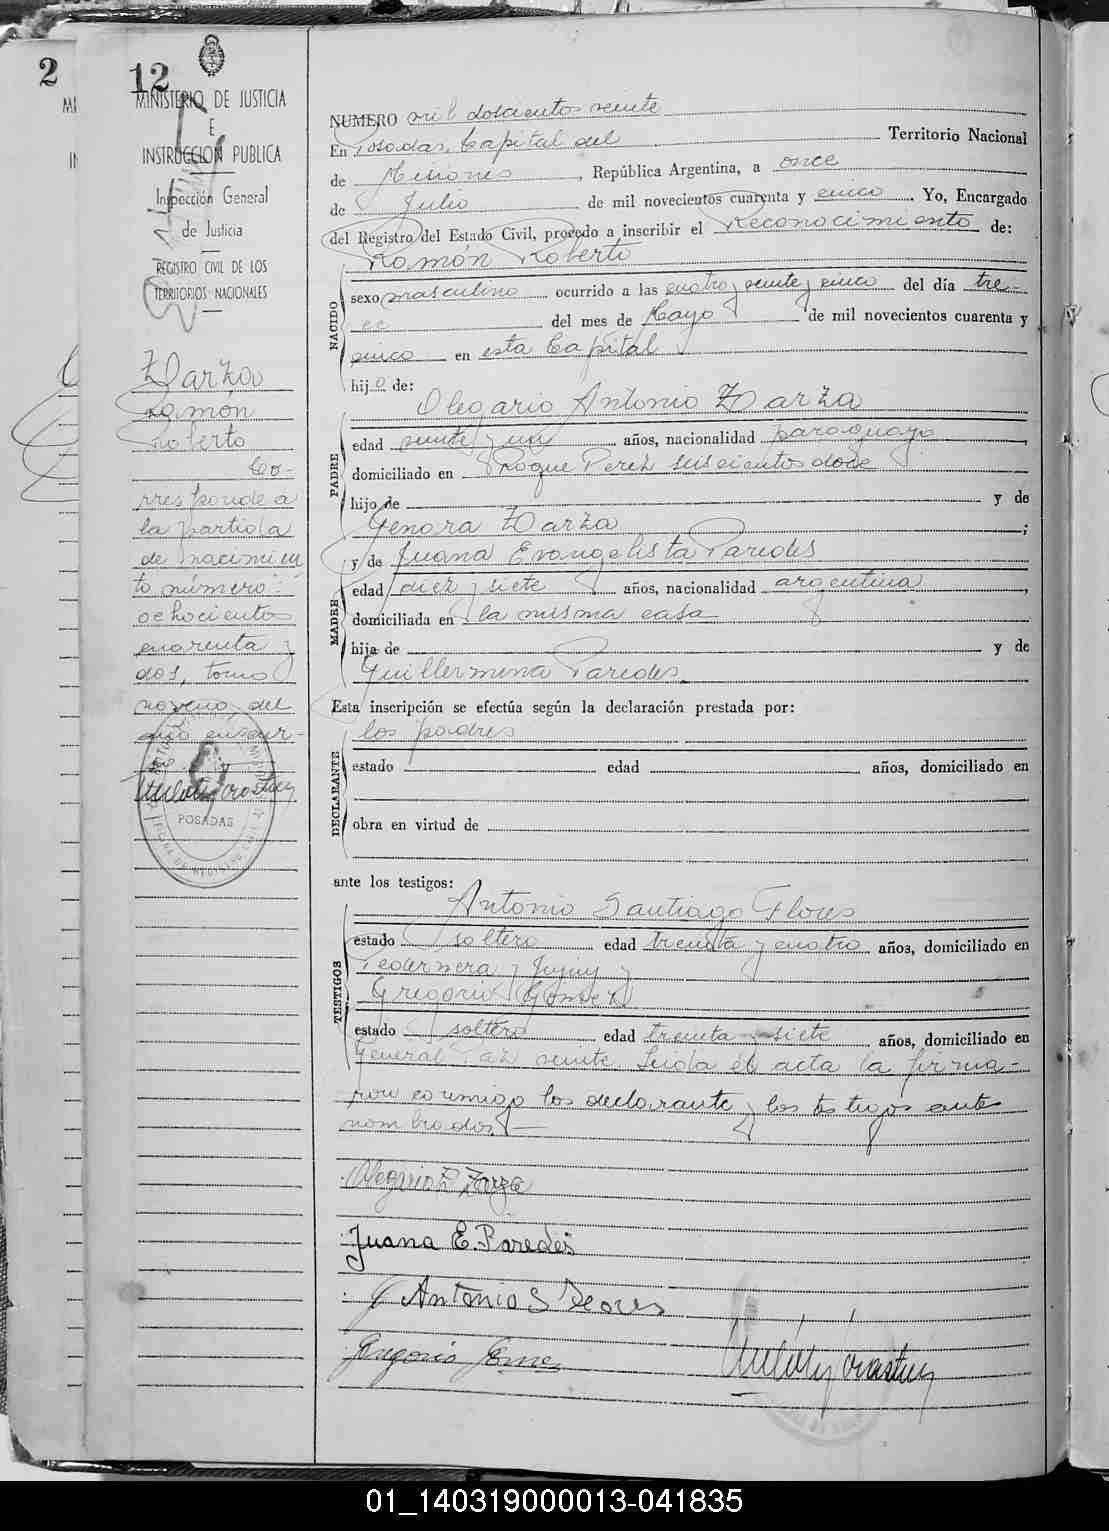 2
12
MINISTERIO DE JUSTICIA
E
INSTRUCCION PUBLICA
Inspección General
de Justicia
REGISTRO CIVIL DE LOS
TERRITORIOS NACIONALES
Zarza
Ramón
Roberto
Co-
rresponde a
la partida
de nacimien
to número:
ochocientos
cuarenta y
dos, tomo
noveno, del
año en cur-
POSADAS
NUMERO mil doscientos veinte
En Posadas, Capital del Territorio Nacional
de Misiones, República Argentina, a once
de Julio de mil novecientos cuarenta y cinco. Yo, Encargado
del Registro del Estado Civil, procedo a inscribir el Reconocimiento de:
Ramón Roberto
NACIDO
sexo masculino ocurrido a las cuatro y veinte y cinco del día tre-
ce del mes de Mayo de mil novecientos cuarenta y
cinco en esta Capital
hijo de:
Olegario Antonio Zarza
PADRE
edad veinte y un años, nacionalidad paraguayo,
domiciliado en Roque Perez seiscientos doce
hijo de y de
Genora Zarza;
y de Juana Evangelista Paredes
MADRE
edad diez y siete años, nacionalidad argentina,
domiciliada en la misma casa
hija de y de
Guillermina Paredes.
Esta inscripción se efectúa según la declaración prestada por:
los padres
DECLARANTE
estado edad años, domiciliado en
obra en virtud de
ante los testigos:
Antonio Santiago Flores
TESTIGOS
estado soltero edad treinta y cuatro años, domiciliado en
Pedernera y Jujuy y
Gregorio Gomez
estado soltero edad treinta siete años, domiciliado en
General Paz veinte. Leída el acta la firma-
ron conmigo los declarante y los testigos ante
nombrados.
Olegario Zarza
Juana E. Paredes
Antonio S Flores
Gregorio Gomez
01_140319000013-041835